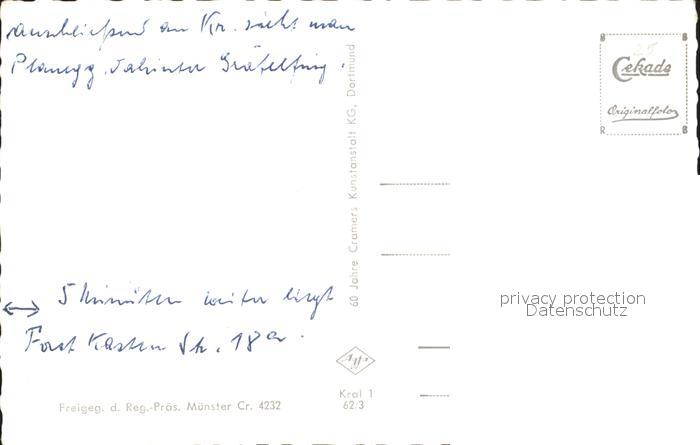 anschließend an Kr. sieht man
Planegg dahinter Gräfelfing.
5 Minuten weiter liegt
Forst Kasten Str. 18a.
Freigeg. d. Reg.-Präs. Münster Cr. 4232
60 Jahre Cramers Kunstanstalt KG, Dortmund
Agfa
Kral 1
62/3
B B
25
Cekade
Originalfoto
R B
privacy protection
Datenschutz